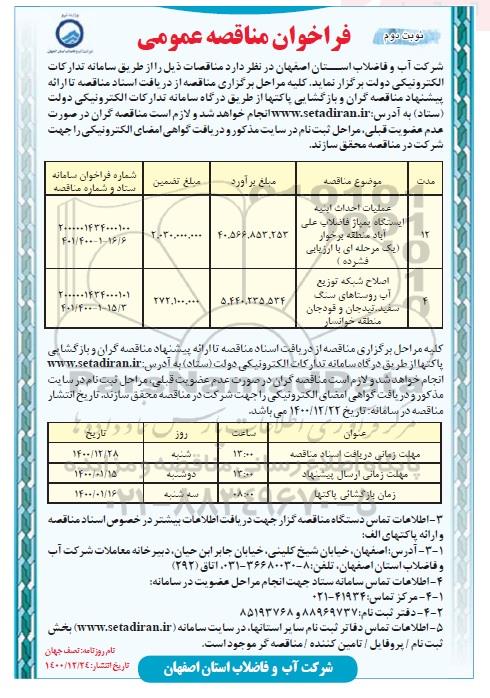 نوبت دوم
فراخوان مناقصه عمومی
شرکت آب و فاضلاب استان اصفهان در نظر دارد مناقصات ذیل را از طریق سامانه تدارکات
الکترونیکی دولت برگزار نماید. کلیه مراحل برگزاری مناقصه از دریافت اسناد مناقصه تا ارائه
پیشنهاد مناقصه گران و بازگشایی پاکتها از طریق درگاه سامانه تدارکات الکترونیکی دولت
(ستاد) به آدرس: www.setadiran.ir انجام خواهد شد و لازم است مناقصه گران در صورت
عدم عضویت قبلی، مراحل ثبت نام در سایت مذکور و دریافت گواهی امضای الکترونیکی را جهت
شرکت در مناقصه محقق سازند.
مدت موضوع مناقصه مبلغ برآورد مبلغ تضمین شماره فراخوان سامانه ستاد و شماره مناقصه
۱۲ عملیات احداث ابنیه ایستگاه پمپاژ فاضلاب علی آباد منطقه برخوار (یک مرحله ای با ارزیابی فشرده) ۴۰.۵۶۶.۸۵۳.۲۵۳ ۲.۰۳۰.۰۰۰.۰۰۰ ۲۰۰۰۰۰۱۴۳۴۰۰۰۱۰۰ ۴۰۱/۴۰۰-۱-۱۶/۶
۴ اصلاح شبکه توزیع آب روستاهای سنگ سفید،تیدجان و قودجان منطقه خوانسار ۵.۴۴۰.۲۳۵.۵۳۴ ۲۷۲.۱۰۰.۰۰۰ ۲۰۰۰۰۰۱۴۳۴۰۰۰۱۰۱ ۴۰۱/۴۰۰-۱-۱۵/۳
کلیه مراحل برگزاری مناقصه از دریافت اسناد مناقصه تا ارائه پیشنهاد مناقصه گران و بازگشایی
پاکتها از طریق درگاه سامانه تدارکات الکترونیکی دولت (ستاد) به آدرس: www.setadiran.ir
انجام خواهد شد و لازم است مناقصه گران در صورت عدم عضویت قبلی، مراحل ثبت نام در سایت
مذکور و دریافت گواهی امضای الکترونیکی را جهت شرکت در مناقصه محقق سازند. تاریخ انتشار
مناقصه در سامانه: تاریخ ۱۴۰۰/۱۲/۲۲ می باشد.
عنوان ساعت روز تاریخ
مهلت زمانی دریافت اسناد مناقصه ۱۳:۰۰ شنبه ۱۴۰۰/۱۲/۲۸
مهلت زمانی ارسال پیشنهاد ۱۳:۰۰ دوشنبه ۱۴۰۰/۰۱/۱۵
زمان بازگشائی پاکتها ۰۸:۰۰ سه شنبه ۱۴۰۰/۰۱/۱۶
۳-اطلاعات تماس دستگاه مناقصه گزار جهت دریافت اطلاعات بیشتر در خصوص اسناد مناقصه
و ارائه پاکتهای الف:
۳-۱- آدرس: اصفهان، خیابان شیخ کلینی، خیابان جابر ابن حیان، دبیرخانه معاملات شرکت آب
و فاضلاب استان اصفهان، تلفن: ۸-۳۶۶۸۰۰۳۰-۰۳۱، اتاق (۲۹۲)
۴-اطلاعات تماس سامانه ستاد جهت انجام مراحل عضویت در سامانه:
۴-۱- مرکز تماس: ۴۱۹۳۴-۰۲۱
۴-۲- دفتر ثبت نام: ۸۸۹۶۹۷۳۷ و ۸۵۱۹۳۷۶۸
۵-اطلاعات تماس دفاتر ثبت نام سایر استانها، در سایت سامانه (www.setadiran.ir) بخش
ثبت نام / پروفایل / تامین کننده / مناقصه گر موجود است.
نام روزنامه: نصف جهان
تاریخ انتشار: ۱۴۰۰/۱۲/۲۴
شرکت آب و فاضلاب استان اصفهان